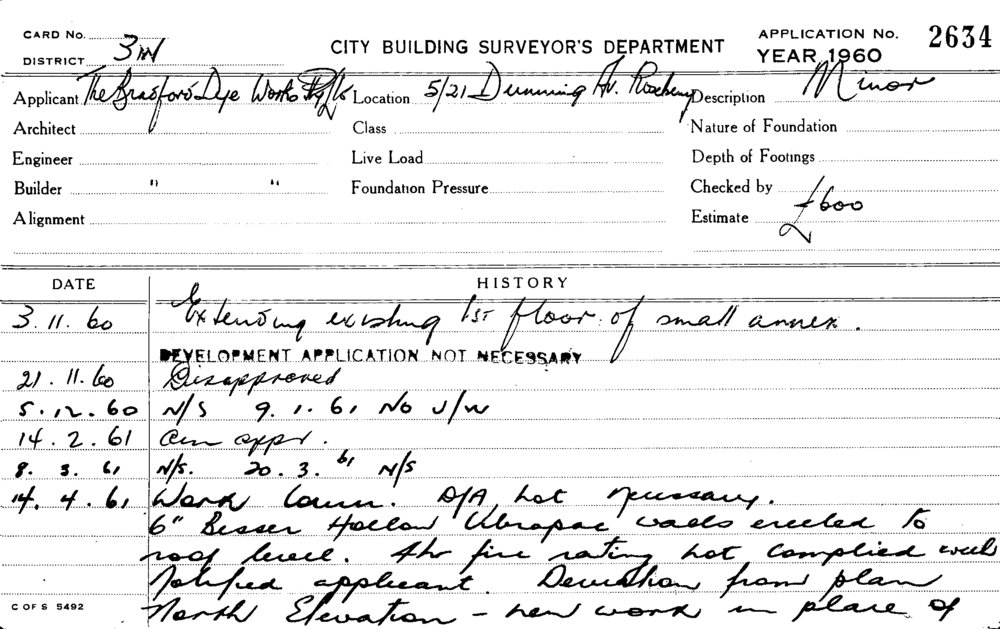 CARD No.
DISTRICT 3W
CITY BUILDING SURVEYOR'S DEPARTMENT
APPLICATION No. 2634
YEAR 1960
Applicant The Bradford Dye Works Pty Ltd Location 5/21 Dunning Av. Rosebery Description Minor
Architect Class Nature of Foundation
Engineer Live Load Depth of Footings
Builder " " Foundation Pressure Checked by
Alignment Estimate £600
DATE HISTORY
3.11.60 Extending existing 1st floor of small annex.
DEVELOPMENT APPLICATION NOT NECESSARY
21.11.60 Disapproved
5.12.60 N/S 9.1.61 No J/W
14.2.61 appr.
8.3.61 N/S. 20.3.61 N/S
14.4.61 Work Comm. D/A not necessary.
6" Besser Hollow Vibrapac walls erected to
roof level. fire rating not complied with
Notified applicant. Deviation from plan
North Elevation - new work in place of
C OF S 5492